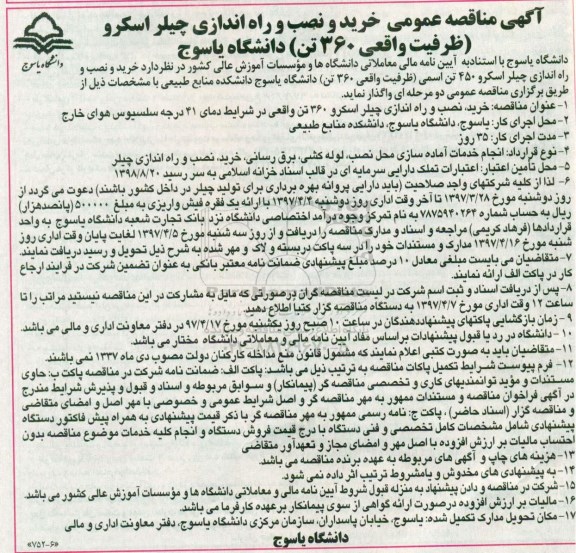 آگهی مناقصه عمومی خرید و نصب و راه اندازی چیلر اسکرو
(ظرفیت واقعی ۳۶۰ تن) دانشگاه یاسوج
دانشگاه یاسوج
دانشگاه یاسوج با استنادبه آیین نامه مالی معاملاتی دانشگاه ها و مؤسسات آموزش عالی کشور در نظردارد خرید و نصب و
راه اندازی چیلر اسکرو ۴۵۰ تن اسمی (ظرفیت واقعی ۳۶۰ تن) دانشگاه یاسوج دانشکده منابع طبیعی با مشخصات ذیل از
طریق برگزاری مناقصه عمومی دو مرحله ای واگذار نماید.
۱- عنوان مناقصه: خرید، نصب و راه اندازی چیلر اسکرو ۳۶۰ تن واقعی در شرایط دمای ۴۱ درجه سلسیوس هوای خارج
۲- محل اجرای کار: یاسوج، دانشگاه یاسوج، دانشکده منابع طبیعی
۳- مدت اجرای کار: ۳۵ روز
۴- نوع قرارداد: انجام خدمات آماده سازی محل نصب، لوله کشی، برق رسانی، خرید، نصب و راه اندازی چیلر
۵- محل تأمین اعتبار: اعتبارات تملک دارایی سرمایه ای در قالب اسناد خزانه اسلامی به سر رسید ۱۳۹۸/۸/۲۰
۶- لذا از کلیه شرکتهای واجد صلاحیت (باید دارایی پروانه بهره برداری برای تولید چیلر در داخل کشور باشند) دعوت می گردد از
روز دوشنبه مورخ ۱۳۹۷/۳/۲۸ تا آخر وقت اداری روز دوشنبه ۱۳۹۷/۴/۴ با ارائه یک فقره فیش واریزی به مبلغ ۵۰۰۰۰۰ (پانصدهزار)
ریال به حساب شماره ۷۸۷۵۹۴۰۲۶۴ به نام تمرکز وجوه درآمد اختصاصی دانشگاه نزد بانک تجارت شعبه دانشگاه یاسوج به واحد
قراردادها (فرهاد کریمی) مراجعه و اسناد و مدارک مناقصه را دریافت و از روز سه شنبه مورخ ۱۳۹۷/۴/۵ لغایت پایان وقت اداری روز
شنبه مورخ ۱۳۹۷/۴/۱۶ مدارک و مستندات خود را در سه پاکت دربسته و لاک و مهر شده به شرح ذیل تحویل و رسید دریافت نمایند.
۷- متقاضیان می بایست مبلغی معادل ۱۰ درصد مبلغ پیشنهادی ضمانت نامه معتبر بانکی به عنوان تضمین شرکت در فرایند ارجاع
کار در پاکت الف ارائه نمایند.
۸- پس از دریافت اسناد و ثبت اسم شرکت در لیست مناقصه گران درصورتی که مایل به مشارکت در این مناقصه نیستید مراتب را تا
ساعت ۱۲ وقت اداری مورخ ۱۳۹۷/۴/۷ به دستگاه مناقصه گزار کتبا اطلاع دهید.
۹- زمان بازگشایی پاکتهای پیشنهاددهندگان در ساعت ۱۰ صبح روز یکشنبه مورخ ۹۷/۴/۱۷ در دفتر معاونت اداری و مالی می باشد.
۱۰- دانشگاه در رد یا قبول پیشنهادات براساس مفاد آیین نامه مالی و معاملاتی دانشگاه مختار می باشد.
۱۱- متقاضیان باید به صورت کتبی اعلام نمایند که مشمول قانون منع مداخله کارکنان دولت مصوب دی ماه ۱۳۳۷ نمی باشند.
۱۲- فرم پیوست شرایط تکمیل پاکات مناقصه به ترتیب ذیل می باشد: پاکت الف: ضمانت نامه شرکت در مناقصه پاکت ب: حاوی
مستندات و مؤید توانمندیهای کاری و تخصصی مناقصه گر (پیمانکار) و سوابق مربوطه و اسناد و قبول و پذیرش شرایط مندرج
در آگهی فراخوان مناقصه و مستندات ممهور به مهر مناقصه گر و اصل شرایط عمومی و خصوصی با مهر اصل و امضای متقاضی
و مناقصه گزار (اسناد حاضر)، پاکت ج: نامه رسمی ممهور به مهر مناقصه گر با ذکر قیمت پیشنهادی به همراه پیش فاکتور دستگاه
پیشنهادی شامل مشخصات کامل تخصصی و فنی دستگاه با درج قیمت فروش دستگاه و انجام کلیه خدمات موضوع مناقصه بدون
احتساب مالیات بر ارزش افزوده با اصل مهر و امضای مجاز و تعهدآور متقاضی
۱۳- هزینه های چاپ و آگهی های مربوطه به عهده برنده مناقصه می باشد.
۱۴- به پیشنهادی های مخدوش و یامشروط ترتیب اثر داده نمی شود.
۱۵- شرکت در مناقصه و دادن پیشنهاد به منزله قبول شروط آیین نامه مالی و معاملاتی دانشگاه ها و مؤسسات آموزش عالی کشور می باشد.
۱۶- مالیات بر ارزش افزوده درصورت ارائه گواهی از سوی پیمانکار برعهده کارفرما می باشد.
۱۷- مکان تحویل مدارک تکمیل شده: یاسوج، خیابان پاسداران، سازمان مرکزی دانشگاه یاسوج، دفتر معاونت اداری و مالی
دانشگاه یاسوج
«۷۵۲-۶»